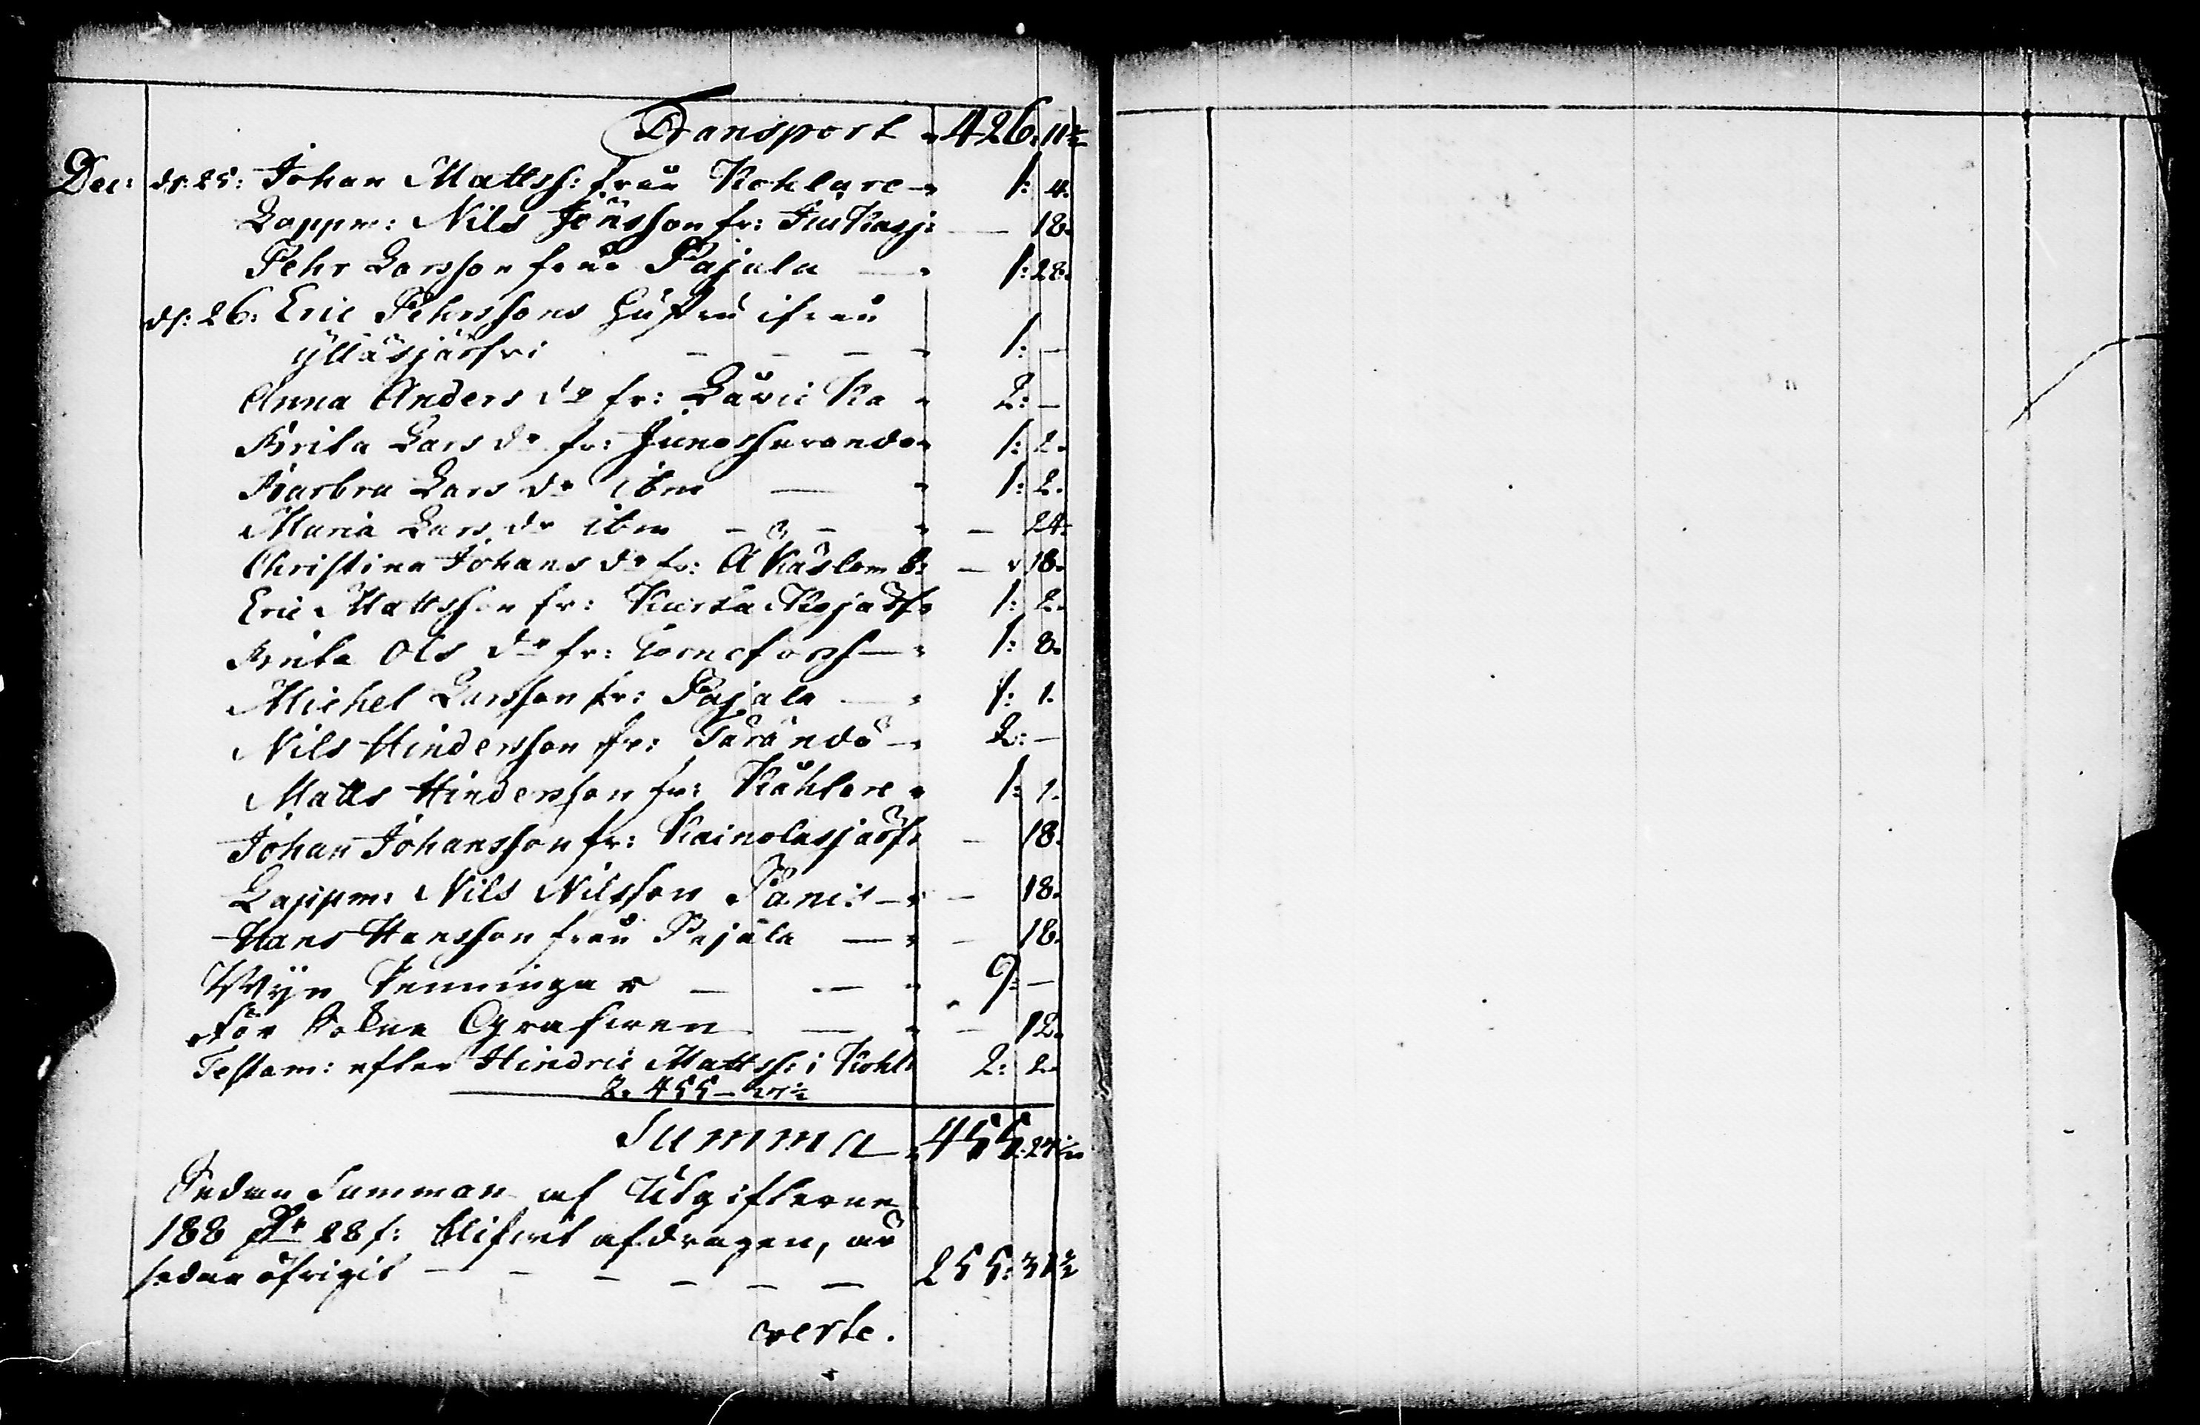 Transport 426. 11½
Dec: d: 25: Johan Mattss: från Kohlare 1: 4.
Lappm: Nils Jönsson fr: Jukkasj: — 18.
Pehr Larsson från Pajala — 1: 28.
d: 26. Eric Pehrssons Hustru ifrån
ylläsjärfvi — — — — 1: —
Anna Anders dr fr: Lavicka 2: —
Brita Lars dr fr: Junossuvando 1: 2.
Barbru Lars dr ibm — 1: 2.
Maria Lars dr ibm — — — 24.
Christina Johans dr fr: Äkäslomb: — 18.
Eric Mattsson fr: 1: 2.
Brita Ols dr fr: Torneforss — 1: 8.
Michel Larsson fr: Pajala — 1: 1.
Nils Hindersson fr: Tärändö — 2: —
Matts Hindersson fr: Kåhlare 1: 1.
Johan Johansson fr: Kainolasjärf: — 18.
Lappm: Nils Nilsson — — 18.
Hans Hansson från Pajala — — 18.
Wyn Penningar — — 9: —
för Grafwen — — 12.
Testam: efter Hindric Mattss: i Kohl: 2: 2.
Summa 455: 24½
Sedan Summan af Utgifterne
188 28 s: blifwit afdragen, är
sedan öfrigit — — — — — — 255:
verte.